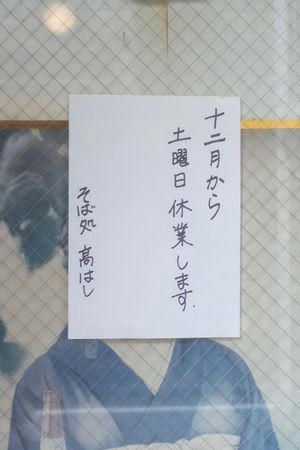 十二月から
土曜日休業します.
そば処 高はし